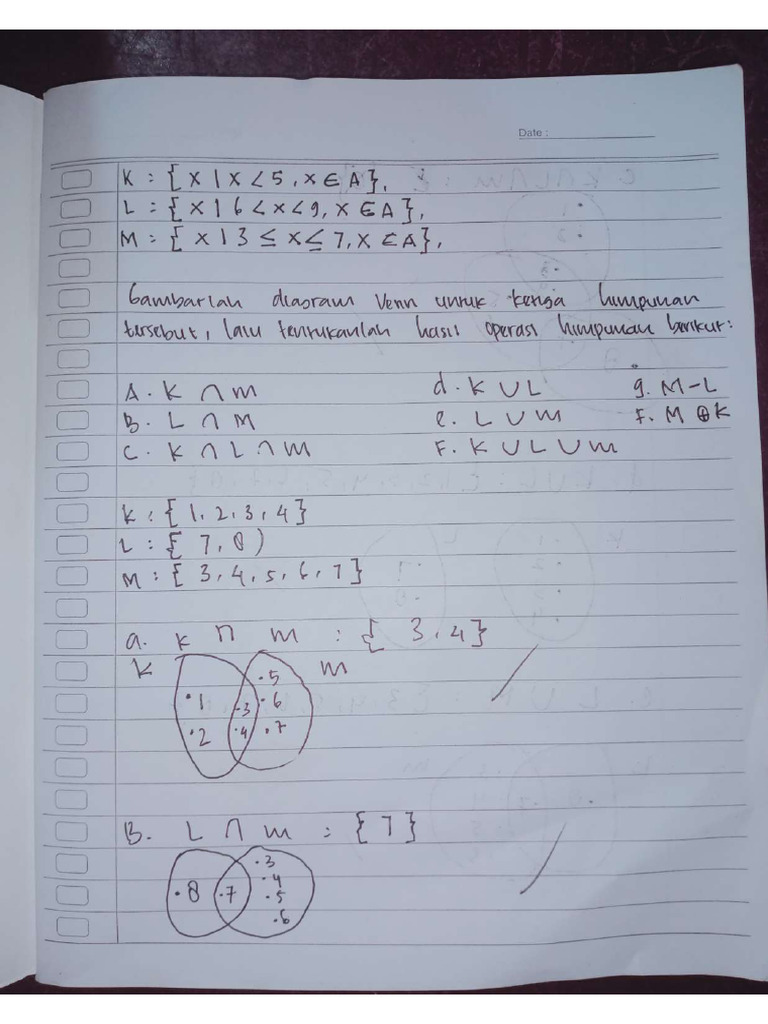 Date :
K : { x | x < 5, x ∈ A },
L : { x | 6 < x < 9, x ∈ A },
M : { x | 3 ≤ x ≤ 7, x ∈ A },
Gambarlah diagram Venn untuk ketiga himpunan
tersebut, lalu tentukanlah hasil operasi himpunan berikut:
A. K ∩ M d. K ∪ L g. M - L
B. L ∩ M e. L ∪ M F. M ⊕ K
C. K ∩ L ∩ M F. K ∪ L ∪ M
K : { 1, 2, 3, 4 }
L : { 7, 8 )
M : { 3, 4, 5, 6, 7 }
a. K ∩ M : { 3, 4 }
K M
.5
.1 .3 .6
.2 .4 .7
B. L ∩ M : { 7 }
.3
.4
.8 .7 .5
.6